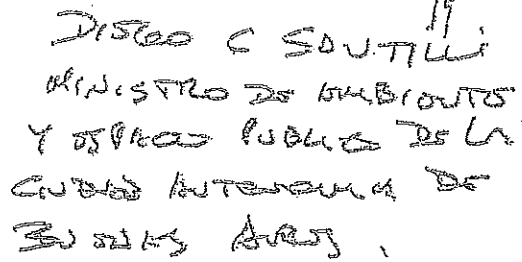 DIEGO C SANTILLI
MINISTRO DE AMBIENTE
Y ESPACIO PUBLICO DE LA
CIUDAD AUTONOMA DE
BUENOS AIRES.